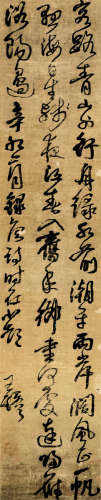 客路青山外行舟綠水前潮平兩岸闊風正一帆
懸海日生殘夜江春入舊年鄉書何處達歸雁
洛陽邊 辛卯
王鐸